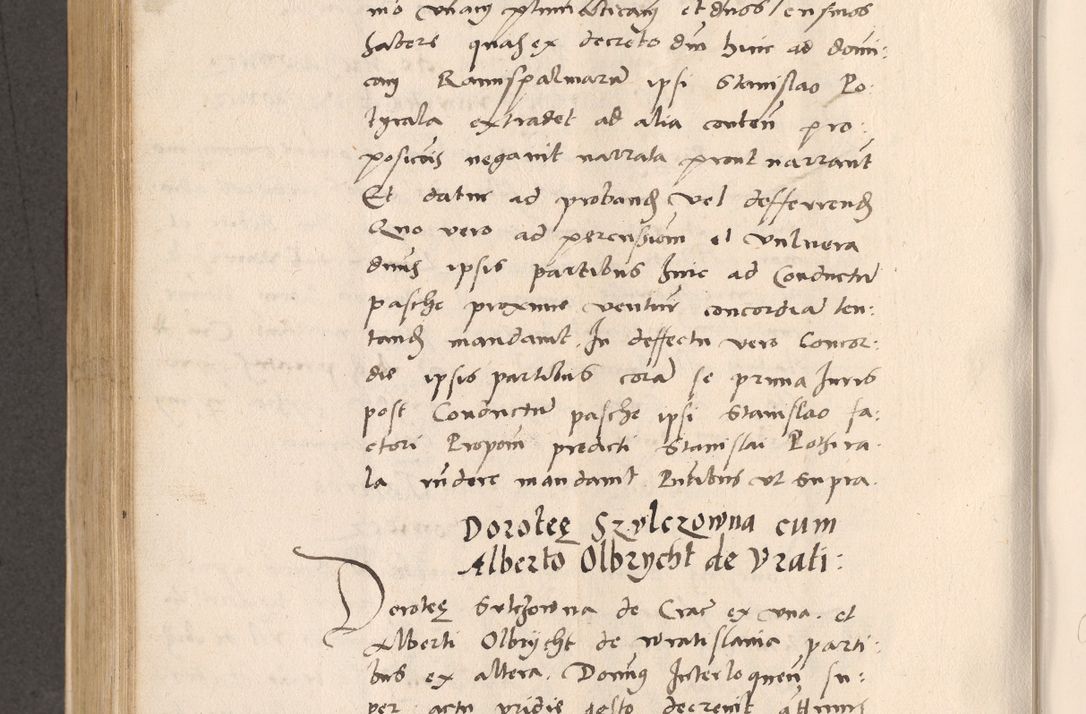 habere quas ex decreto dni hinc ad domi:
cam Ramispalmarum ipsi Stanislao Po:
tyrala extradet ad alia conten pro:
posicois negavit narrata pront narrant
Et datur ad proband vel defferrend
Quo vero ad percussiom et vulnera
dnus ipsis partibus hinc ad Conductu
pasche proxime ventur concordia ten:
tand mandavit. In deffectu vero Concor:
die ipsis partibus cora se prima Juris
post Conductu pasche ipsi Stanislao fa:
ctori Propoin predicti Stanislai Pothira
la rndere mandavit. Pntibus ut supra.
Dorotheę Szylczowna cum
Alberto Olbrycht de Vrati:
Doroteę Sylczowna de Crac ex una. et
Alberti Olbrycht de Wratislavia parti:
bus ex altera. Domng Interloquen su:
per actu pridie decrevit